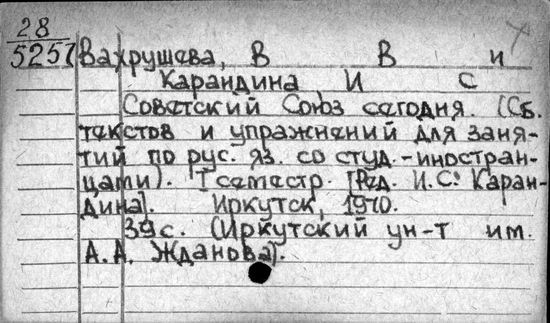 28
5257 Вахрушева, В В и
Карандина И С
Советский Союз сегодня. (Сб.
текстов и упражнений для заня-
тий по рус. яз. со студ.-иностран-
цами). I семестр. [Ред. И.С. Каран-
дина]. Иркутск, 1970.
39 с. (Иркутский ун-т им.
А.А. Жданова).